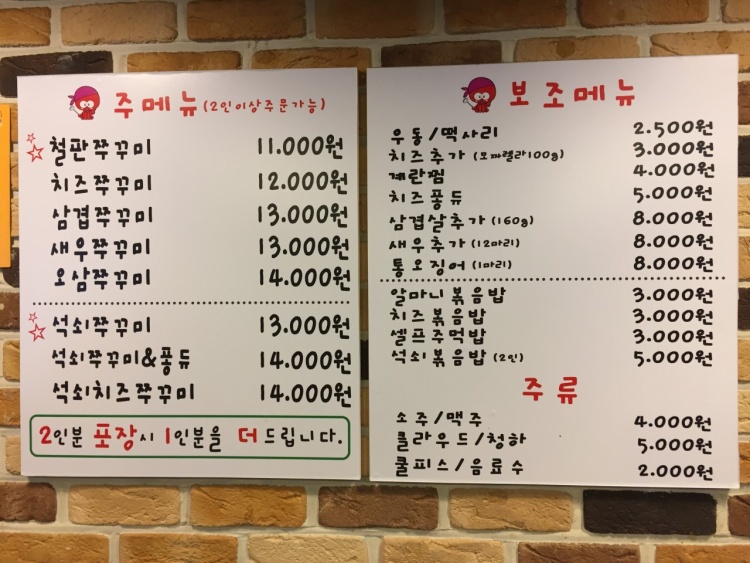 주메뉴 (2인이상주문가능)
철판쭈꾸미 11.000원
치즈쭈꾸미 12.000원
삼겹쭈꾸미 13.000원
새우쭈꾸미 13.000원
오삼쭈꾸미 14.000원
석쇠쭈꾸미 13.000원
석쇠쭈꾸미&퐁듀 14.000원
석쇠치즈쭈꾸미 14.000원
2인분 포장시 1인분을 더 드립니다.
보조메뉴
우동/떡사리 2.500원
치즈추가 (모짜렐라100g) 3.000원
계란찜 4.000원
치즈퐁듀 5.000원
삼겹살추가 (160g) 8.000원
새우추가 (12마리) 8.000원
통오징어 (1마리) 8.000원
알마니볶음밥 3.000원
치즈볶음밥 3.000원
셀프주먹밥 3.000원
석쇠볶음밥 (2인) 5.000원
주류
소주/맥주 4.000원
클라우드/청하 5.000원
쿨피스/음료수 2.000원